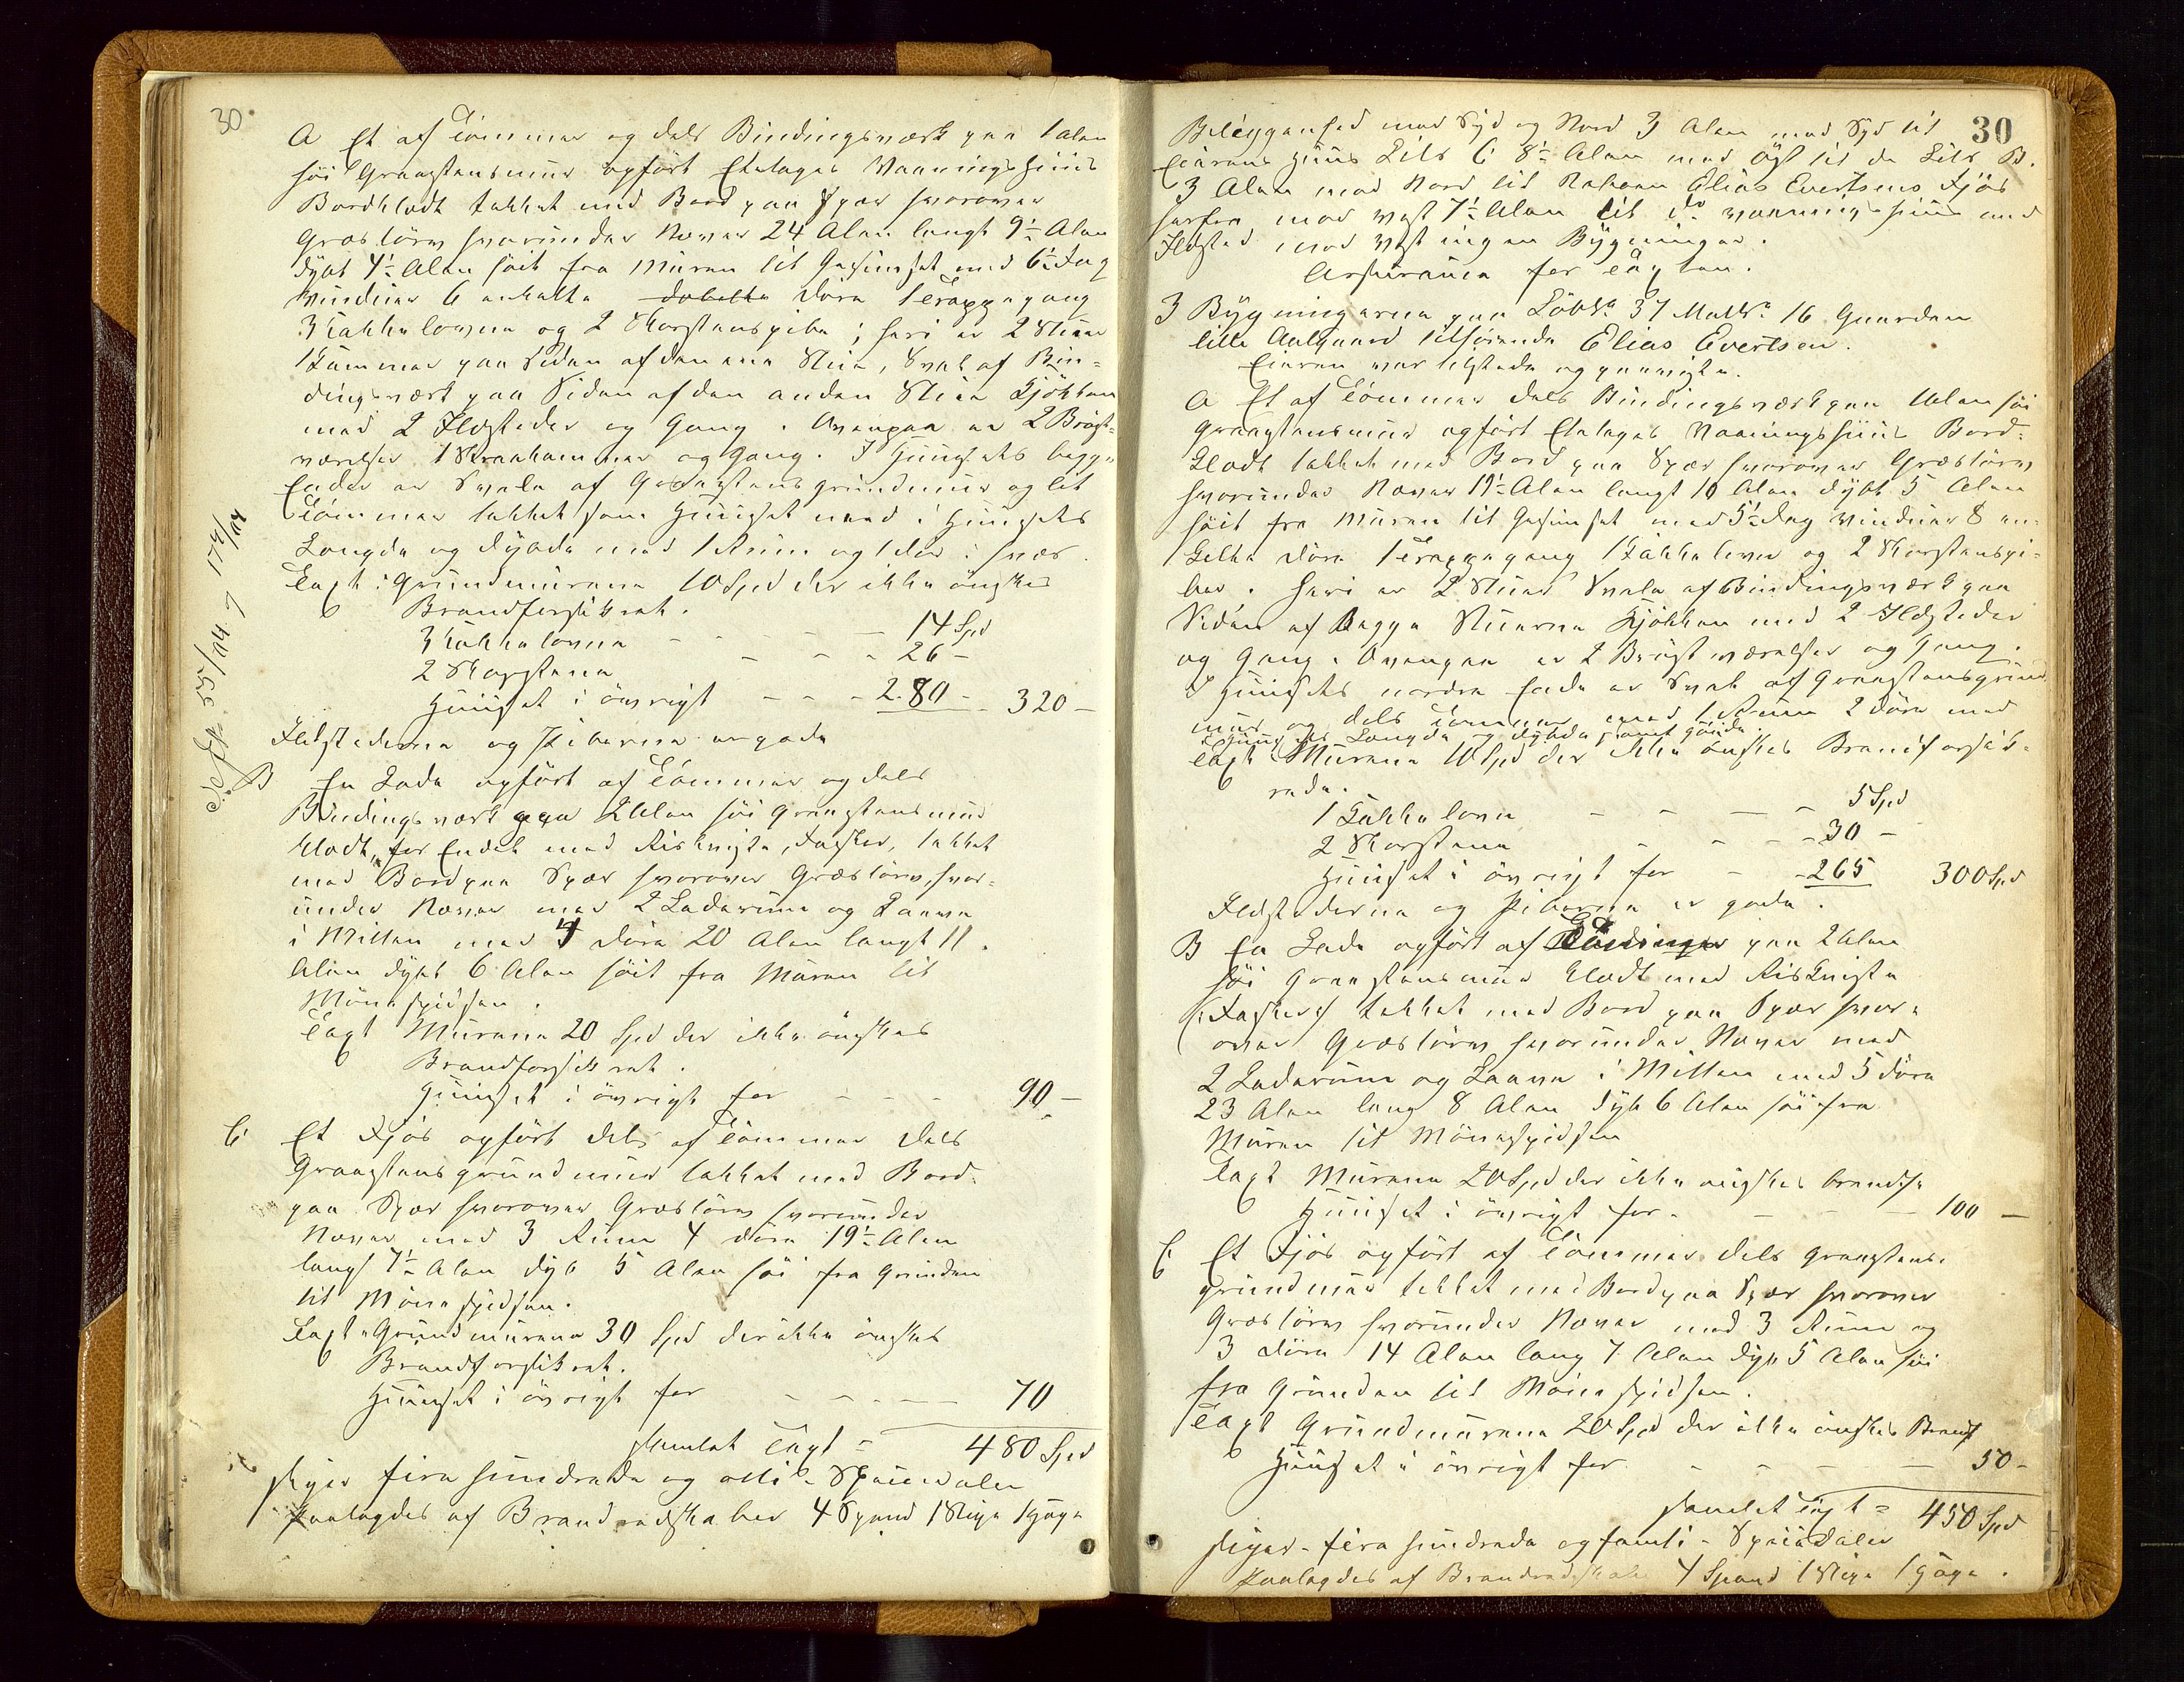 30
A Et af Tømmer og dels Bindingsværk paa 1 Alen
høi Graastensmuur opført Etetages Vaaningshuus
Bordklædt tækket med Bord paa Spær hvorover
Græstørv hvorunder Næver 24 Alen langt 9½ Alen
dybt 4½ Alen høit fra Muren til Gesimset med 6½ Fag
Vinduer 6 enkelte dobelte Døre 1 Trappegang
3 Kakkelovne og 2 Skorstenspibe; heri er 2 Stuer
1 Kammer paa Siden af den ene Stue, Sval af Bin-
dingsværk paa Siden af den anden Stue Kjøkken
med 2 Ildsteder og Gang. Ovenpaa er 2 Bryst-
værelser 1 Skraakammer og Gang. I Huusets begge
Ender er Svale af Graastens grundmuur og lit
Tømmer tækket som Huuset med i Huusets
Længde og Dybde med 1 Rum og 1 Dør i hver.
Taxt: Grundmurene 10 Spd der ikke ønskes
Brandforsikret.
3 Kakkelovne - - - - 14 Spd
2 Skorstene - - - 26 -
Huuset i øvrigt - - - 280 - 320 -
Ildstederne og Piberne er gode
B En Lade opført af Tømmer og dels
Bindingsværk paa 2 Alen høi Graastensmuur
klædt, for Endel med Riskviste, Fasker, tækket
med Bord paa Spær hvorover Græstørv, hvor-
under Næver med 2 Laderum og Laave
i Mitten med 4 Døre 20 Alen langt 11
Alen dybt 6 Alen høit fra Muren til
Mønespidsen.
Taxt Murene 20 Spd der ikke ønskes
Brandforsikret.
Huuset i øvrigt for - - - 90 -
C Et Fjøs opført dels af Tømmer dels
Graastensgrundmuur tækket med Bord
paa Spær hvorover Græstørv hvorunder
Næver med 3 Rum 4 Døre 19½ Alen
langt 7½ Alen dyb 5 Alen høi fra Grunden
til Mønespidsen.
Taxt Grundmurene 30 Spd der ikke ønskes
Brandforsikret.
Huuset i øvrigt for - - - - 70
samlet Taxt = 480 Spd
siger fire hundrede og otti - Speciedaler
Paalagdes af Brandredskaber 4 Spand 1 Stige 1 Hage
30
Beliggenhed mod Syd og Nord 3 Alen mod Syd til
Eierens Huus Litr C 8½ Alen mod Øst til do Litr B.
3 Alen mod Nord til Naboen Elias Evertsens Fjøs
herfra mod Vest 7½ Alen til do Vaaningshuus med
Ildsted mod Vest ingen Bygninger.
Assurance for Taxten.
3 Bygningerne paa Løbno 37 Matrno 16 Gaarden
lille Aalgaard tilhørende Elias Evertsen.
Eieren var tilstede og paaviste.
A Et af Tømmer dels Bindingsværk paa 1 Alen høi
Graastensmuur opført Etetages Vaaningshuus Bord-
klædt tækket med Bord paa Spær hvorover Græstørv
hvorunder Næver 19½ Alen langt 10 Alen dybt 5 Alen
høit fra Muren til Gesimset med 5½ Fag Vinduer 8 en-
kelte Døre 1 Trappegang 1 Kakkelovn og 2 Skorstenspi-
ber. heri er 2 Stuer Svale af Bindingsværk paa
Siden af begge Stuerne Kjøkken med 2 Ildsteder
og Gang. Ovenpaa er 2 Brystværelser og Gang.
I Huusets nordre Ende er Sval af Graastensgrund
muur og dels Tømmer med 1 Rum 2 Døre med
Huusets Længde og Dybde samt Høide.
Taxt Murene 10 Spd der ikke ønskes Brandforsik-
rede.
1 Kakkelovn - - - - 5 Spd
2 Skorstene - - - 30 -
Huuset i øvrigt for - - 265 300 Spd
Ildstederne og Piberne er gode.
B En Lade opført af paa 2 Alen
høi Graastensmuur klædt med Riskviste
(Fasker) tækket med Bord paa Spær hvor-
over Græstørv hvorunder Næver med
2 Laderum og Laave i Mitten med 5 Døre
23 Alen lang 8 Alen dyb 6 Alen høi fra
Muren til Mønespidsen
Taxt Murene 20 Spd der ikke ønskes brandfs
Huuset i øvrigt for - - - 100 -
C Et Fjøs opført af Tømmer dels Graastens-
grundmuur tækket med Bord paa Spær hvorover
Græstørv hvorunder Næver med 3 Rum og
3 Døre 14 Alen lang 7 Alen dyb 5 Alen høi
fra Grunden til Mønespidsen.
Taxt Grundmurene 20 Spd der ikke ønskes Brandf
Huuset i øvrigt for - - - - 50 -
samlet Taxt = 450 Spd
siger - fire hundrede og femti - Speciedaler
Paalagdes af Brandredskaber 4 Spand 1 Stige 1 Hage.